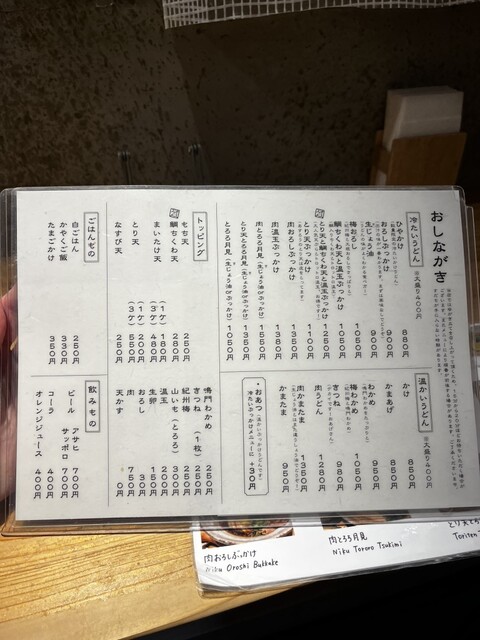 おしながき
冷たいうどん ※大盛り400円
ひやかけ 850円
おろしぶっかけ 900円
生じょう油 900円
梅おろし 1050円
鯛ちくわ天と温玉ぶっかけ 1050円
とり天と鯛ちく天と温玉ぶっかけ 1200円
とり天ぶっかけ 1100円
肉おろしぶっかけ 1300円
肉温玉ぶっかけ 1380円
肉とろろ月見(生じょう油orぶっかけ) 1550円
とり天とろろ月見(生じょう油orぶっかけ) 1350円
とろろ月見(生じょう油orぶっかけ) 1050円
温かいうどん ※大盛り400円
かけ 850円
かまあげ 850円
わかめ 950円
梅わかめ 1050円
きつね 980円
肉うどん 1280円
肉かまたま 1350円
かまたま 950円
・おあつ(温かいぶっかけうどんです)
冷たいぶっかけメニューに+30円
トッピング
もち天 250円
鯛ちくわ天 280円
まいたけ天 (1ケ) 180円
(3ケ) 480円
とり天 (1ケ) 200円
(3ケ) 550円
なすび天 250円
鳴門わかめ 250円
きつね(1枚) 250円
紀州梅 200円
山いも(とろろ) 300円
温玉 200円
生卵 150円
おろし 150円
肉 750円
天かす 0円
ごはんもの
白ごはん 250円
かやくご飯 330円
たまごかけ 350円
飲みもの
ビール アサヒ 700円
サッポロ 700円
コーラ 400円
オレンジジュース 400円
肉おろしぶっかけ
Niku Oroshi Bukkake
肉とろろ月見
Niku Tororo Tsukimi
とり天と
Toriten